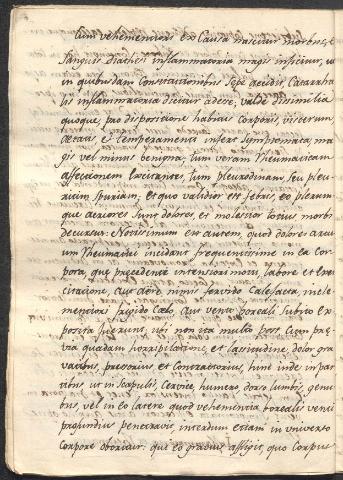 Cum vehementiori ex Causa nascitur morbus, e
Sanguis diathesi inflammatoria magis inficitur, ut
in quibusdam Constitutionibus sepè accidit, Catarrha
lis inflammatoria dicitur adesse, valdè dissimilia
quoque, pro dispositione habitus Corporis, viscerum,
aetatis et temperamenti infert symptomata, ma
gis vel minus benigna, tum veram Rheumaticam
affectionem excitantes, tum pleurodinam, seu pleu
ritim spuriam, et quo validior est febris, eo plerum
que acriores sunt dolores, et molestior totius morbi
decursus. Notissimum est autem, quod dolores arcu
um Rheumatici incidant frequentissime in ea Cor
pora, que precedente intensiori motu, labore et exer
citatione, aut aere nimis fervido Calefacta, incle
mentiori frigido Coelo, aut vento boreali subito ex
posita fuerunt, ubi non ita multo post, Cum prę
via quadam horripilatione, et lassitudine, dolor gra
vativus, pressorius et Contractorius, hinc inde in par
tibus ut in scapulis, Cervice, humero, dorso, lumbis, genu
bus, vel in eo latere quod vehementia borealis venti
profundius penetravit, interdum etiam in universo
Corpore oboritur: que eo gravius affligit, quo Corpus